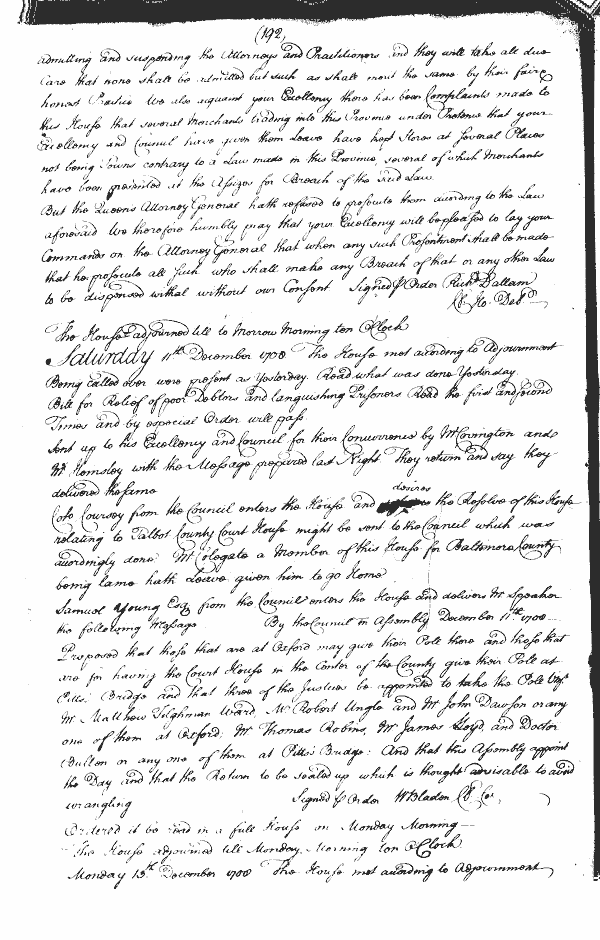 (192,
admitting and suspending the Attorneys and Practitioners and they will take all due
Care that none shall be admitted but such as shall merit the same by their faire
honest Practice We also acquaint your Excellency there has been Complaints made to
this House that several Merchants trading into this Province under Pretence that your
Excellency and Council have given them Leave have kept Stores at several Places
not being Towns contrary to a Law made in this Province, several of which Merchants
have been presented at the Assizes for Breach of the said Law
But the Queens Attorney General hath refused to prosecute them according to the Law
aforesaid We therefore humbly pray that your Excellency will be pleased to lay your
Commands on the Attorney General that when any such Presentment shall be made
that he prosecute all such who shall make any Breach of that or any other Law
to be dispensed withal without our Consent Signed p Order Richd Dallam
Cl. Ho. Del
The House adjourned till to Morrow Morning ten OClock
Saturday 11th December 1708 The House met according to Adjournment
Being called over were present as Yesterday. Read what was done Yesterday
Bill for Relief of poor Debtors and languishing Prisoners Read the first and second
Times and by especial Order will pass
Sent up to his Excellency and Council for their Concurrence by Mr Covington and
Mr Hemsley with the Message prepared last Night They return and say they
delivered the same
desires
Colo Coursey from the Council enters the House and the Resolve of this House
relating to Talbot County Court House might be sent to the Council which was
accordingly done Mr Colegate a Member of this House for Baltimore County
being lame hath Leave given him to go Home
Samuel Young Esq from the Council enters the House and delivers Mr Speaker
the following Message By the Council in Assembly December 11th 1708
Proposed that those that are at Oxford may give their Poll there and those that
are for having the Court House in the Center of the County give their Poll at
Pitts Bridge and that three of the Justices be appointed to take the Poll
Mr Matthew Tilghman Ward, Mr Robert Ungle and Mr John Dawson or any
one of them at Oxford. Mr Thomas Robins, Mr James Lloyd, and Doctor
or any one of them at Pitts's Bridge: And that this Assembly appoint
the Day and that the Return to be sealed up which is thought advisable to avoid
wrangling Signed p Order W Bladen Cl. Co.
Ordered it be read in a full House on Monday Morning
The House adjourned till Monday Morning ten OClock
Monday 13th December 1708 The House met according to Adjournment